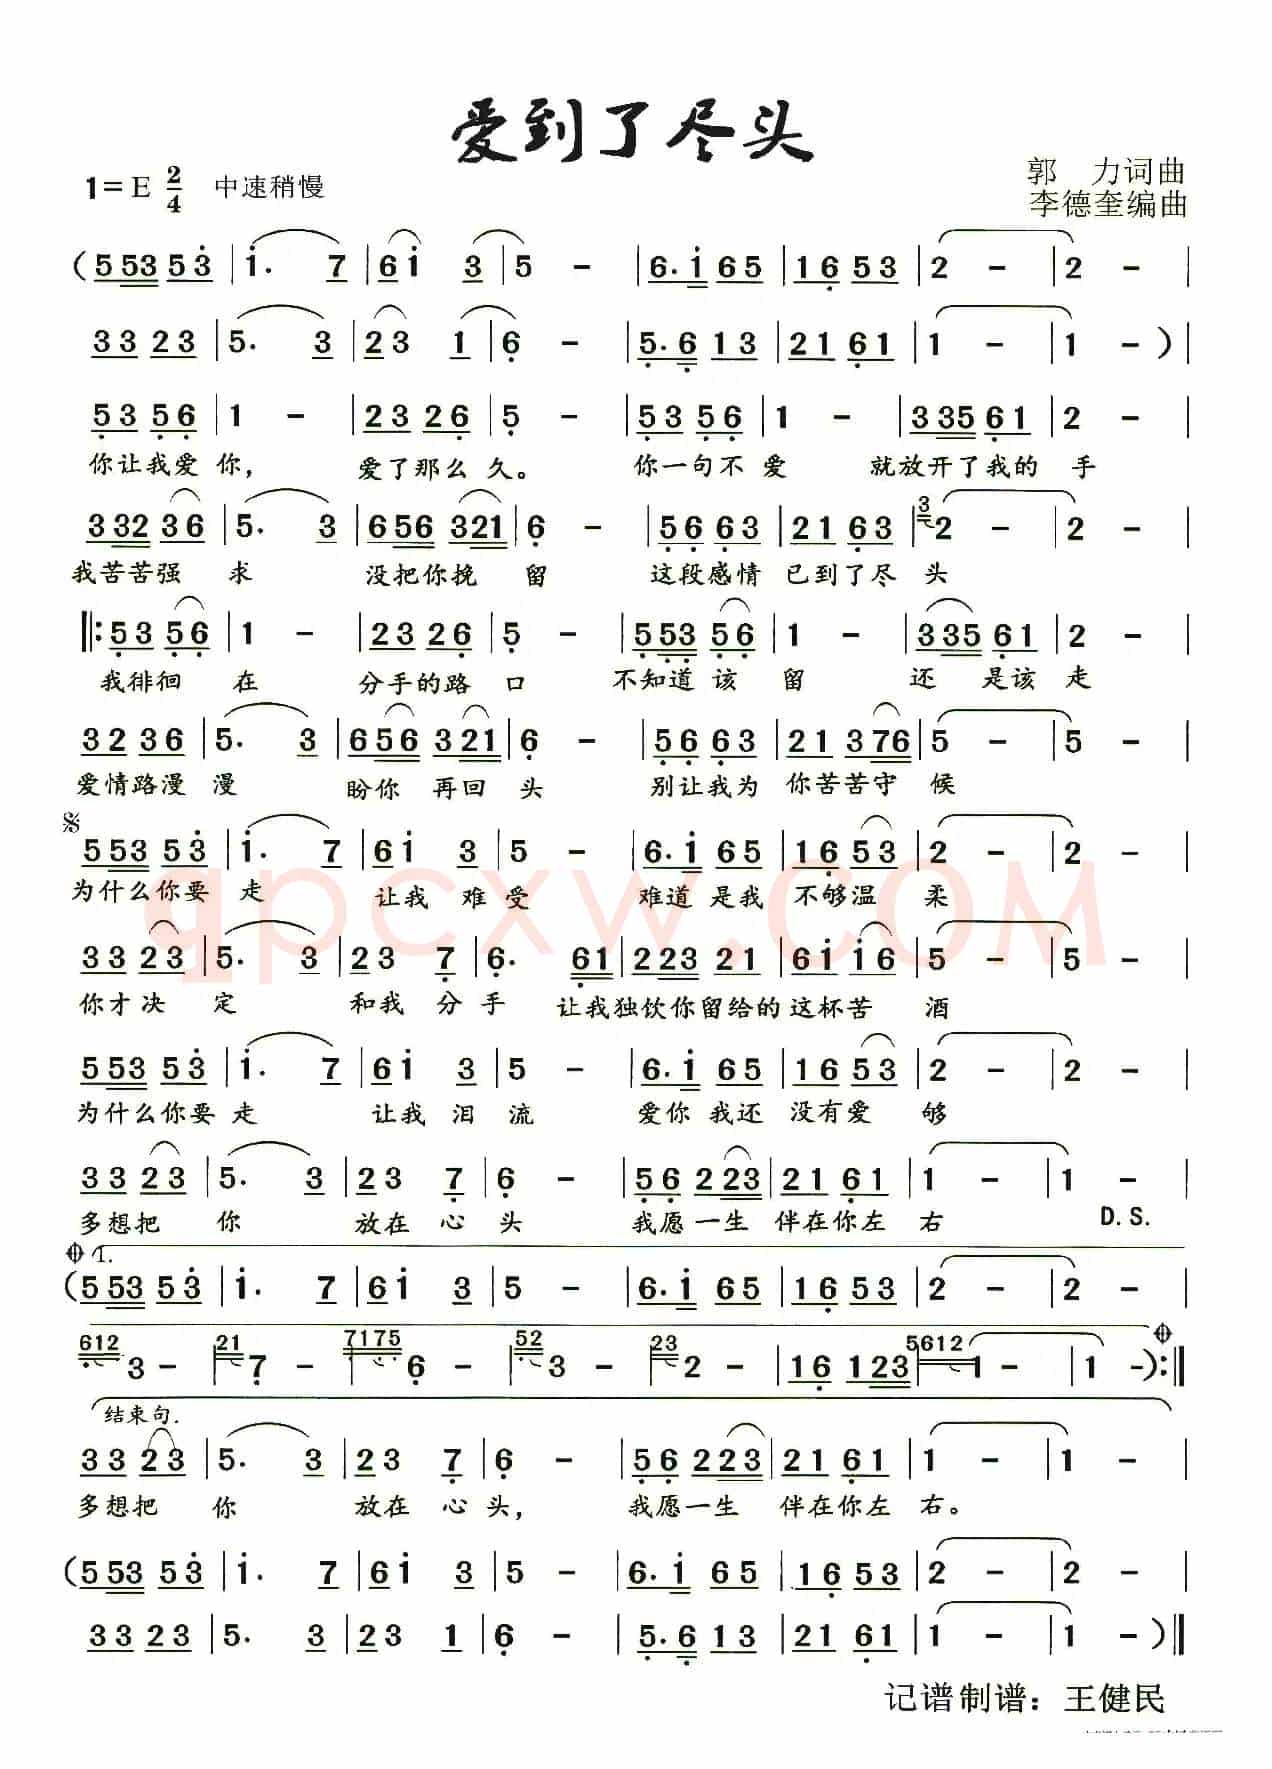 爱到了尽头
1=E 2/4 中速稍慢
郭 力词曲
李德奎编曲
(5 53 5 3 | 1. 7 | 6 1 3 | 5 - | 6. 1 6 5 | 1 6 5 3 | 2 - | 2 - |
3 3 2 3 | 5. 3 | 2 3 1 | 6 - | 5. 6 1 3 | 2 1 6 1 | 1 - | 1 - ) |
5 3 5 6 | 1 - | 2 3 2 6 | 5 - | 5 3 5 6 | 1 - | 3 35 6 1 | 2 - |
你让我爱 你， 爱了那么 久。 你一句不 爱 就放开了我的 手
3 32 3 6 | 5. 3 | 6 56 3 21 | 6 - | 5 6 6 3 | 2 1 6 3 | 3 2 - | 2 - |
我苦苦强 求 没把你挽 留 这段感情 已到了尽 头
‖: 5 3 5 6 | 1 - | 2 3 2 6 | 5 - | 5 53 5 6 | 1 - | 3 35 6 1 | 2 - |
我徘徊 在 分手的路 口 不知道 该 留 还 是该 走
3 2 3 6 | 5. 3 | 6 56 3 21 | 6 - | 5 6 6 3 | 2 1 3 76 | 5 - | 5 - |
爱情路漫 漫 盼你 再回 头 别让我为 你苦苦守 候
5 53 5 3 | 1. 7 | 6 1 3 | 5 - | 6. 1 6 5 | 1 6 5 3 | 2 - | 2 - |
为什么你要 走 让我 难 受 难道 是我 不够温 柔
qpcxw.COM
3 3 2 3 | 5. 3 | 2 3 7 | 6. 61 | 2 23 2 1 | 6 1 1 6 | 5 - | 5 - |
你才决 定 和我 分 手 让我独饮你留给的 这杯苦 酒
5 53 5 3 | 1. 7 | 6 1 3 | 5 - | 6. 1 6 5 | 1 6 5 3 | 2 - | 2 - |
为什么你要 走 让我 泪 流 爱你 我还 没有爱 够
3 3 2 3 | 5. 3 | 2 3 7 | 6 - | 5 6 2 23 | 2 1 6 1 | 1 - | 1 - |
多想把 你 放在 心 头 我愿一生 伴在你左 右 D.S.
1.
(5 53 5 3 | 1. 7 | 6 1 3 | 5 - | 6. 1 6 5 | 1 6 5 3 | 2 - | 2 - |
612 3 - | 21 7 - | 7175 6 - | 52 3 - | 23 2 - | 1 6 1 23 | 5612 1 - | 1 -) :‖
结束句.
3 3 2 3 | 5. 3 | 2 3 7 | 6 - | 5 6 2 23 | 2 1 6 1 | 1 - | 1 - |
多想把 你 放在 心 头， 我愿一生 伴在你左 右。
(5 53 5 3 | 1. 7 | 6 1 3 | 5 - | 6. 1 6 5 | 1 6 5 3 | 2 - | 2 - |
3 3 2 3 | 5. 3 | 2 3 1 | 6 - | 5. 6 1 3 | 2 1 6 1 | 1 - | 1 - ) ‖
记谱制谱：王健民